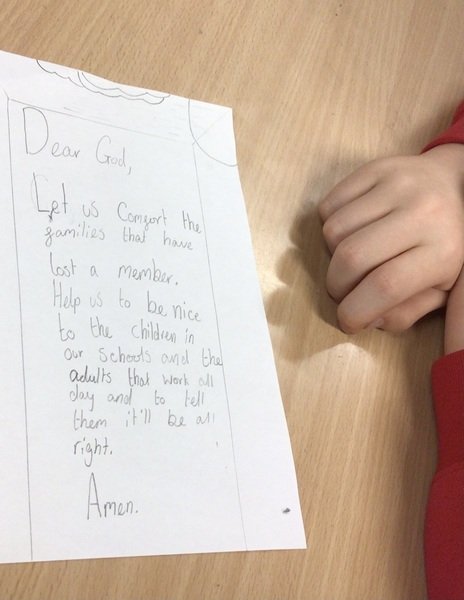 Dear God,
Let us Comfort the
families that have
lost a member.
Help us to be nice
to the children in
our schools and the
adults that work all
day and to tell
them it'll be all
right.
Amen.